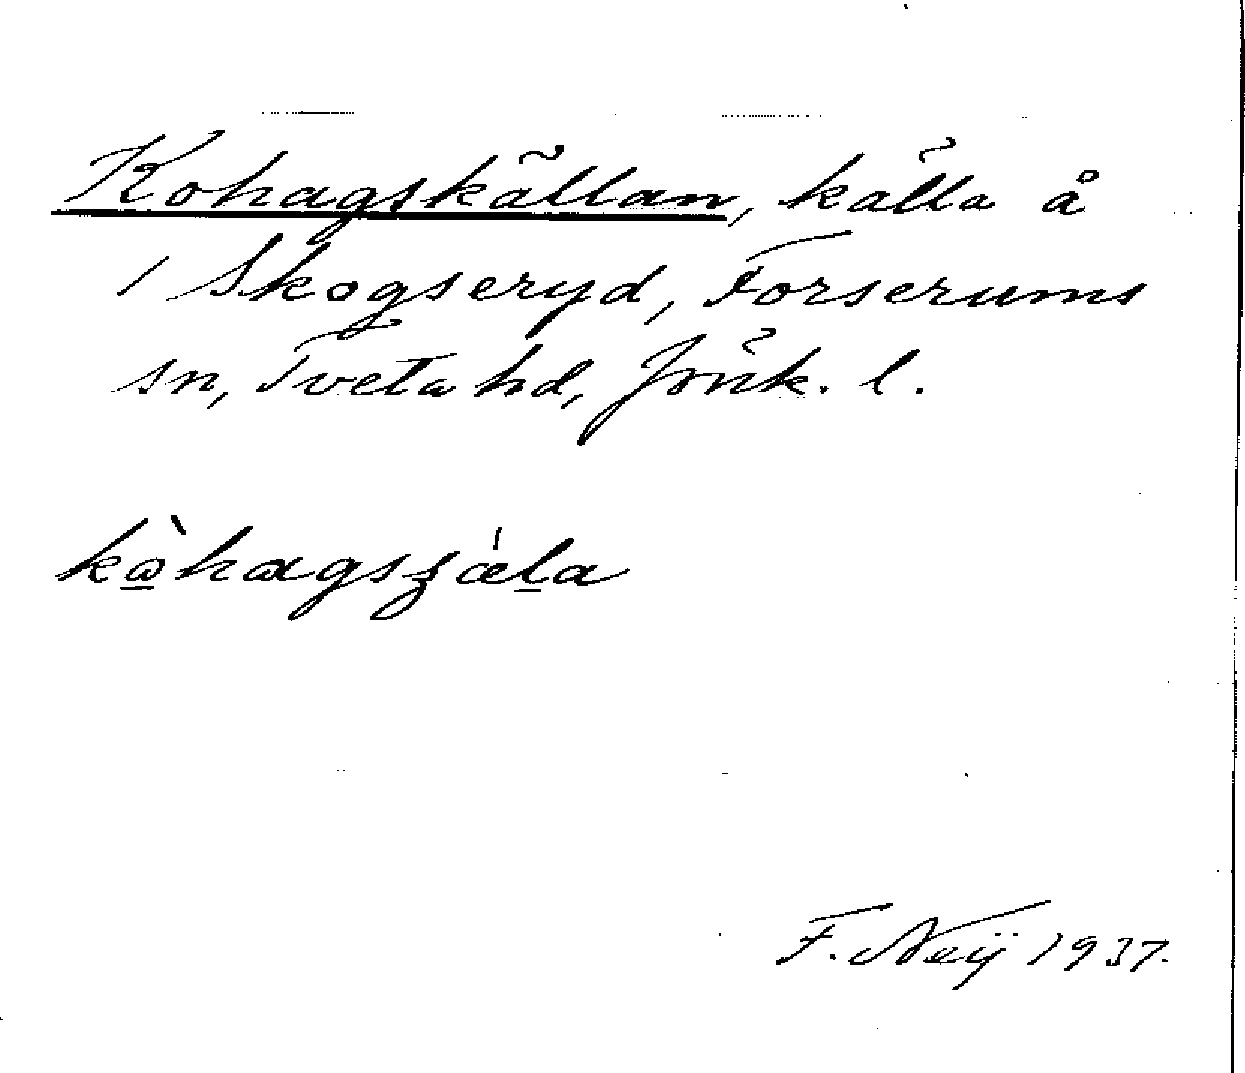 Kohagskällan, källa å
1 Skogseryd, Forserums
sn, Tveta hd, Jönk. l.
F. Neij 1937.